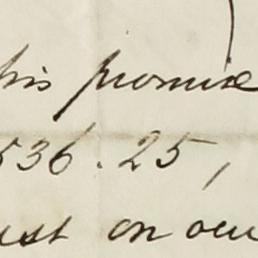 his promise
536.25,
ust on our